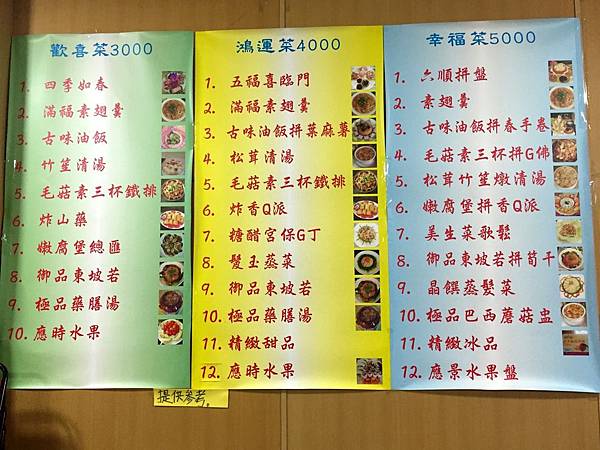 歡喜菜3000
1. 四季如春
2. 滿福素翅羹
3. 古味油飯
4. 竹笙清湯
5. 毛菇素三杯鐵排
6. 炸山藥
7. 嫩腐堡總匯
8. 御品東坡若
9. 極品藥膳湯
10. 應時水果
鴻運菜4000
1. 五福喜臨門
2. 滿福素翅羹
3. 古味油飯拼菜麻薯
4. 松茸清湯
5. 毛菇素三杯鐵排
6. 炸香Q派
7. 糖醋宮保G丁
8. 髮玉蒸菜
9. 御品東坡若
10. 極品藥膳湯
11. 精緻甜品
12. 應時水果
幸福菜5000
1. 六順拼盤
2. 素翅羹
3. 古味油飯拼春手卷
4. 毛菇素三杯拼G佛
5. 松茸竹笙燉清湯
6. 嫩腐堡拼香Q派
7. 美生菜歌鬆
8. 御品東坡若拼筍干
9. 晶饌蒸髮菜
10. 極品巴西蘑菇盅
11. 精緻冰品
12. 應景水果盤
提供參考。